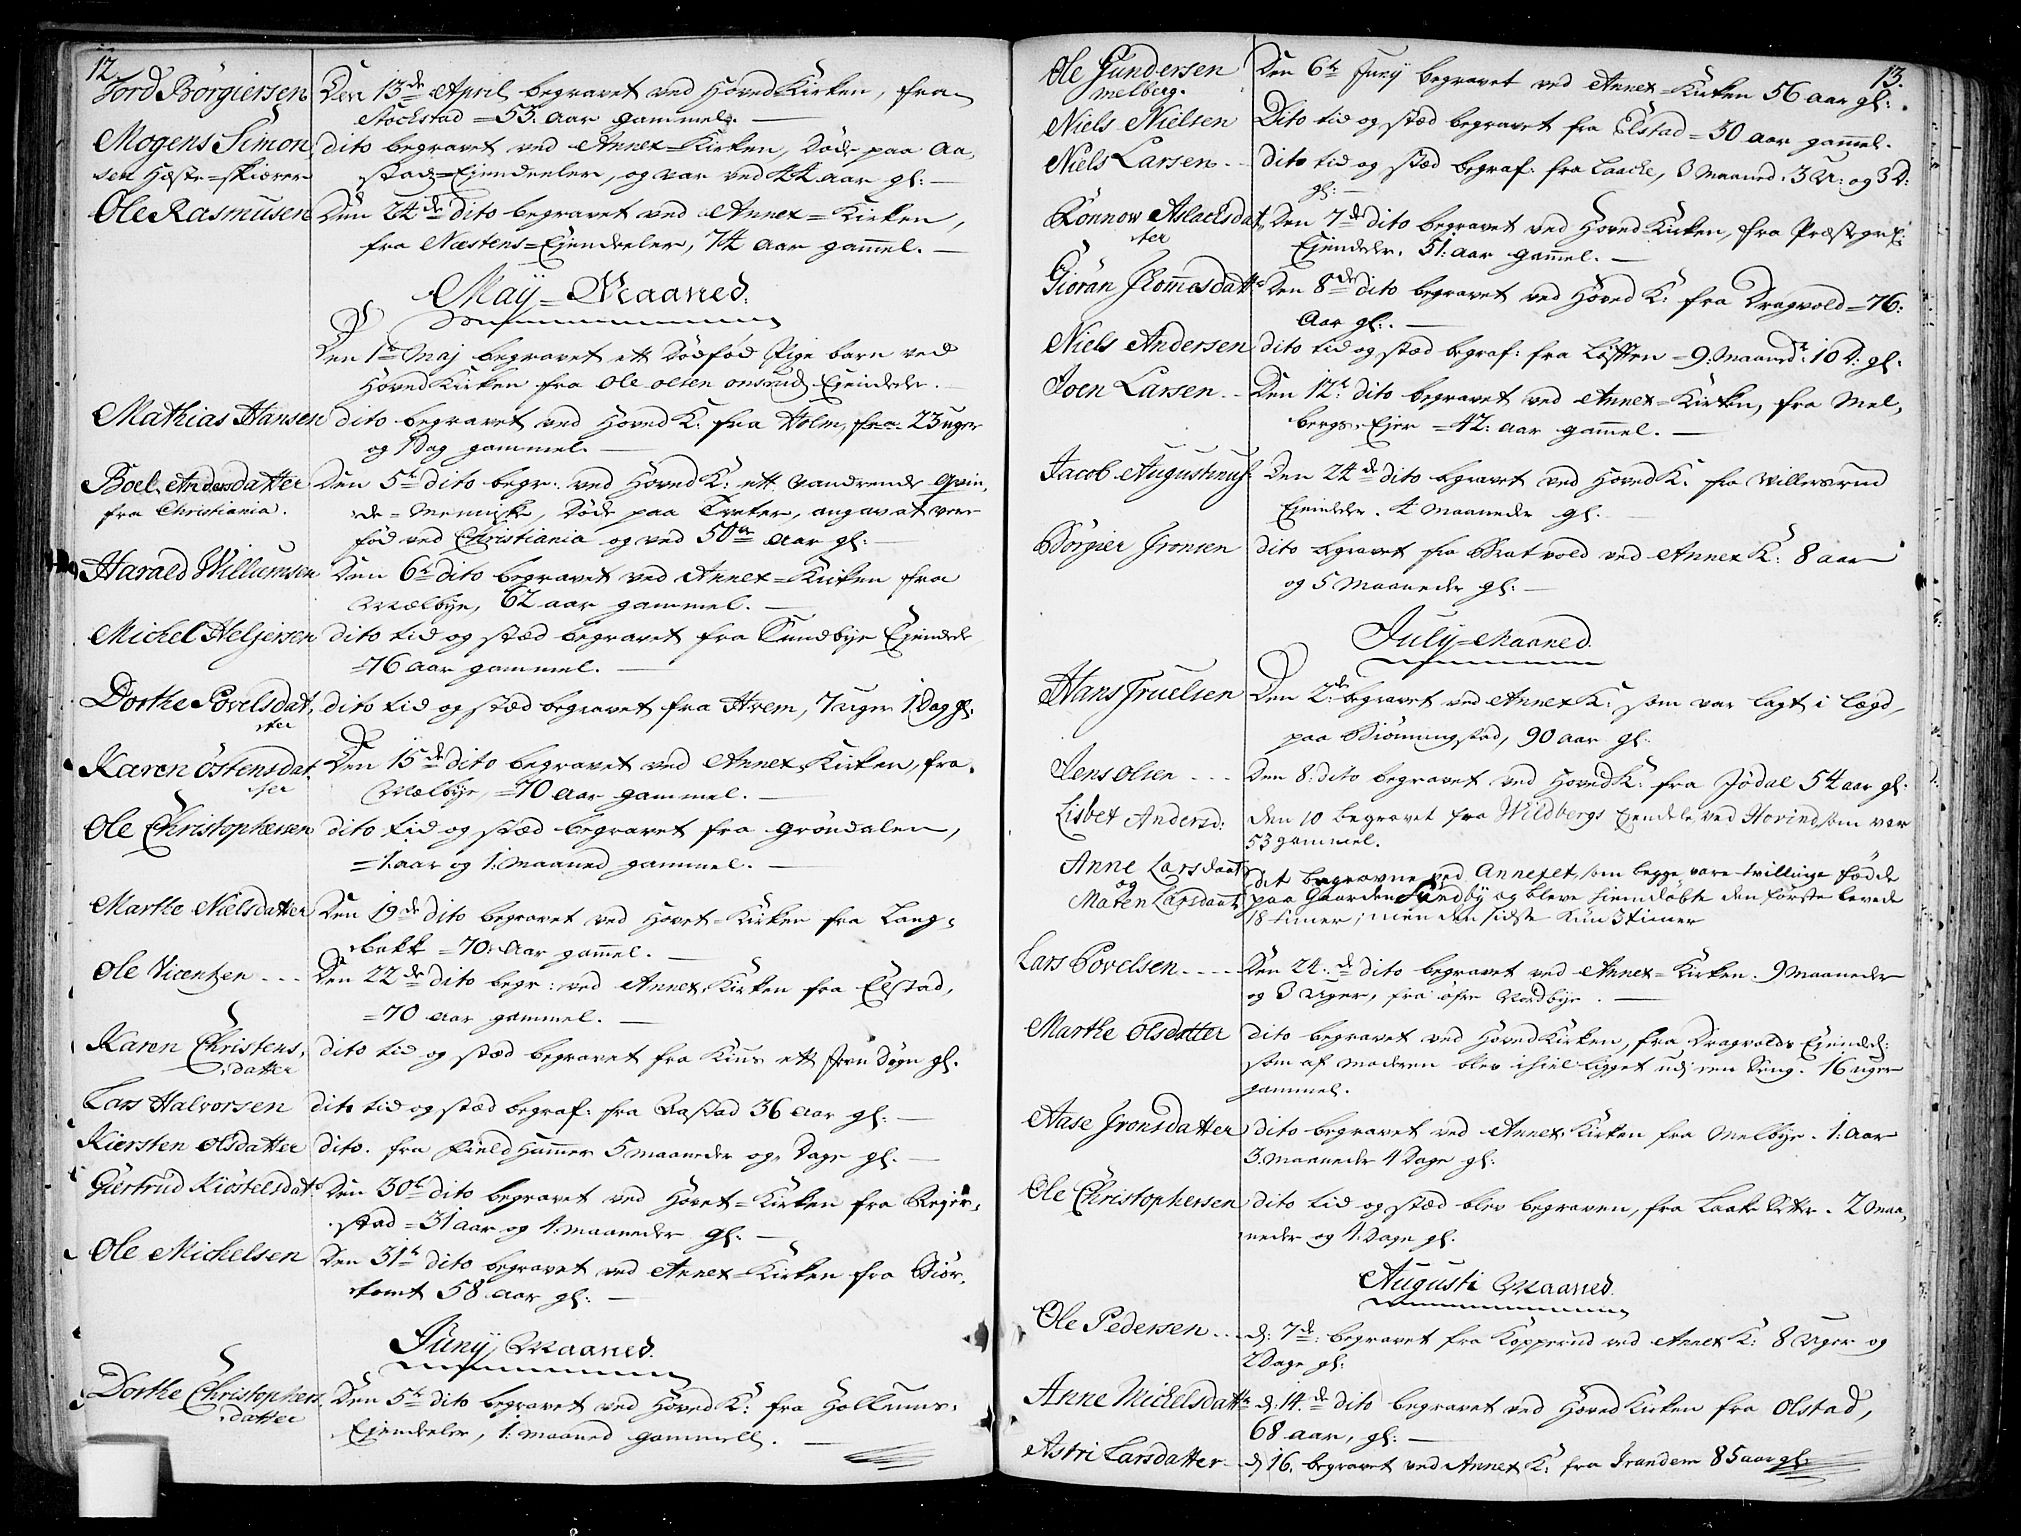 12.
Tord Börgiersen Den 13de April begravet ved HovedKirken, fra
Stockstad = 53. aar gammel. —
Mogens Simon, dito begravet ved Annex=Kirken, Døde paa Aa,
sen Heste=skiærer stad=Ejendeeler, og var ved 44 aar gl: —
Ole Rasmusen Den 24de dito begravet ved Annex=Kirken,
fra Næstens=Ejendeeler, 74 aar gammel. —
May=Maaned.
Den 1te Maj begravet ett Dødfød Pige barn ved
Hoved Kirken fra Ole Olsen Onsrud Ejendele. —
Mathias Hansen dito begravet ved Hoved K: fra Holm, fra 23 uger
og 1 Dag gammel. —
Boel Andersdatter Den 5te dito begr: ved Hoved K: ett vandrende Qvin,
fra Christiania. de=Menniske, Døde paa , angav at være
fød ved Christiania og ved 50 aar gl: —
Harald Willumsen Den 6te dito begravet ved Annex=Kirken fra
Melbye, 62 aar gammel. —
Michel Helgersen dito tid og stæd begravet fra Sundbye Ejendele
=76 aar gammel. —
Dorthe Povelsdat, dito tid og stæd begravet fra Hvem, 7 uger 1. Dag gl:
ter
Karen Östensdat, Den 15de dito begravet ved Annex Kirken, fra
ter Melbye, =70 aar gammel. —
Ole Christophersen dito tid og stæd begravet fra Grøndalen,
=1. aar og 1. Maaned gammel. —
Marthe Nielsdatter Den 19de dito begravet ved Hovet=Kirken fra Lang=
bakk =70. Aar gammel. —
Ole Vicentzen - - - Den 22de dito begr: ved Annex Kirken fra Elstad,
=70 aar gammel. —
Karen Christens, dito tid og stæd begravet fra Kius ett Døgn gl.
datter
Lars Halvorsen dito tid og stæd begraf: fra Aastad 36 aar gl: —
Kiersten Olsdatter dito. fra Field Hammer 5 Maaneder og Dage gl. —
Giertrud Kiöstelsdatr Den 30te dito begravet ved Hovet=Kirken fra Rejer,
stad =31 aar og 4. Maaneder gl: —
Ole Michelsen Den 31te dito begravet ved Annex=Kirken fra Biør,
tomt 58 aar gl: —
Juny Maaned.
Dorthe Christophers Den 5te dito begravet ved Hoved K: fra Holkums,
datter Ejendeeler, 1. Maaned gammell. —
13.
Ole Gundersen Den 6te Juny begravet ved Annex=Kirken 56 aar gl:
Melberg.
Niels Nielsen Dito tid og stæd begravet fra Elstad =30 aar gammel.
Niels Larsen - - dito tid og stæd begraf: fra Laache, 3 Maaned. 3 U: og 3 D:
gl: —
Rönnow Aslachsdat, Den 7de dito begravet ved Hoved Kirken, fra Præstegr:
ter Ejendele, 51. aar gammel. —
Giöran Tommesdatr Den 8de dito begravet ved Hoved K: fra Dragvold =76:
Aar gl: —
Niels Andersen dito tid og stæd begraf: fra Løften =9. Maaned. 10 D: gl:
Joen Larsen - - Den 12te dito begravet ved Annex=Kirken, fra Mel,
bergs Ejer =42. aar gammel. —
Jacob Augustinus: Den 24de dito begravet ved Hoved K: fra Willersrud
Ejendele. 4 Maaneder gl. —
Börgier Jronsen dito begravet fra Bratvold ved Annex K: 8 aar
og 5 Maaneder gl: —
July=Maaned.
Hans Truelsen Den 2de begravet ved Annex K: som var lagt i Lægd,
paa Biønningstad, 90 aar gl:
Jens Olsen - - - Den 8. dito begravet ved Hoved K: fra Jødal 54 aar gl:
Lisbet Andersd: den 10 begravet fra Wildbergs Ejendele ved Hovind som var
53 gammel.
Anne Larsdaat dit begravne ved Annexet, som begge vare tvillinge fødde
og paa Gaarden Sundby og bleve hiemdøbte den første levede
Maren Larsdaat. 18 timer; men den sidste kun 3 timer
Lars Povelsen - - - - Den 24de dito begravet ved Annex=Kirken. 9 Maaneder
og 3 Uger, fra øfre Nordbye. —
Marthe Olsdatter dito begravet ved Hoved Kirken, fra Dragvolds Ejendel:
som af moderen blev ihiel ligget udj sin Seng. 16 uger
gammel.
Aase Jronsdatter dito begravet ved Annex Kirken fra Melbye. 1. Aar
3. Maaneder 4 Dage gl:
Ole Christophersen dito tid og stæd blev begraven, fra Laake . 2 Maa,
neder og 4. Dage gl:
Augusti Maaned.
Ole Pedersen - - - d: 7de: begravet fra Kopperud ved Annex K: 8 Uger og
2 Dage gl:
Anne Michelsdattr d: 14.de dito begravet ved Hoved Kirken fra Olstad,
68 aar, gl: —
Astri Larsdatter - - d. 16. begravet ved Annex K: fra Trandem 85 aar gl: